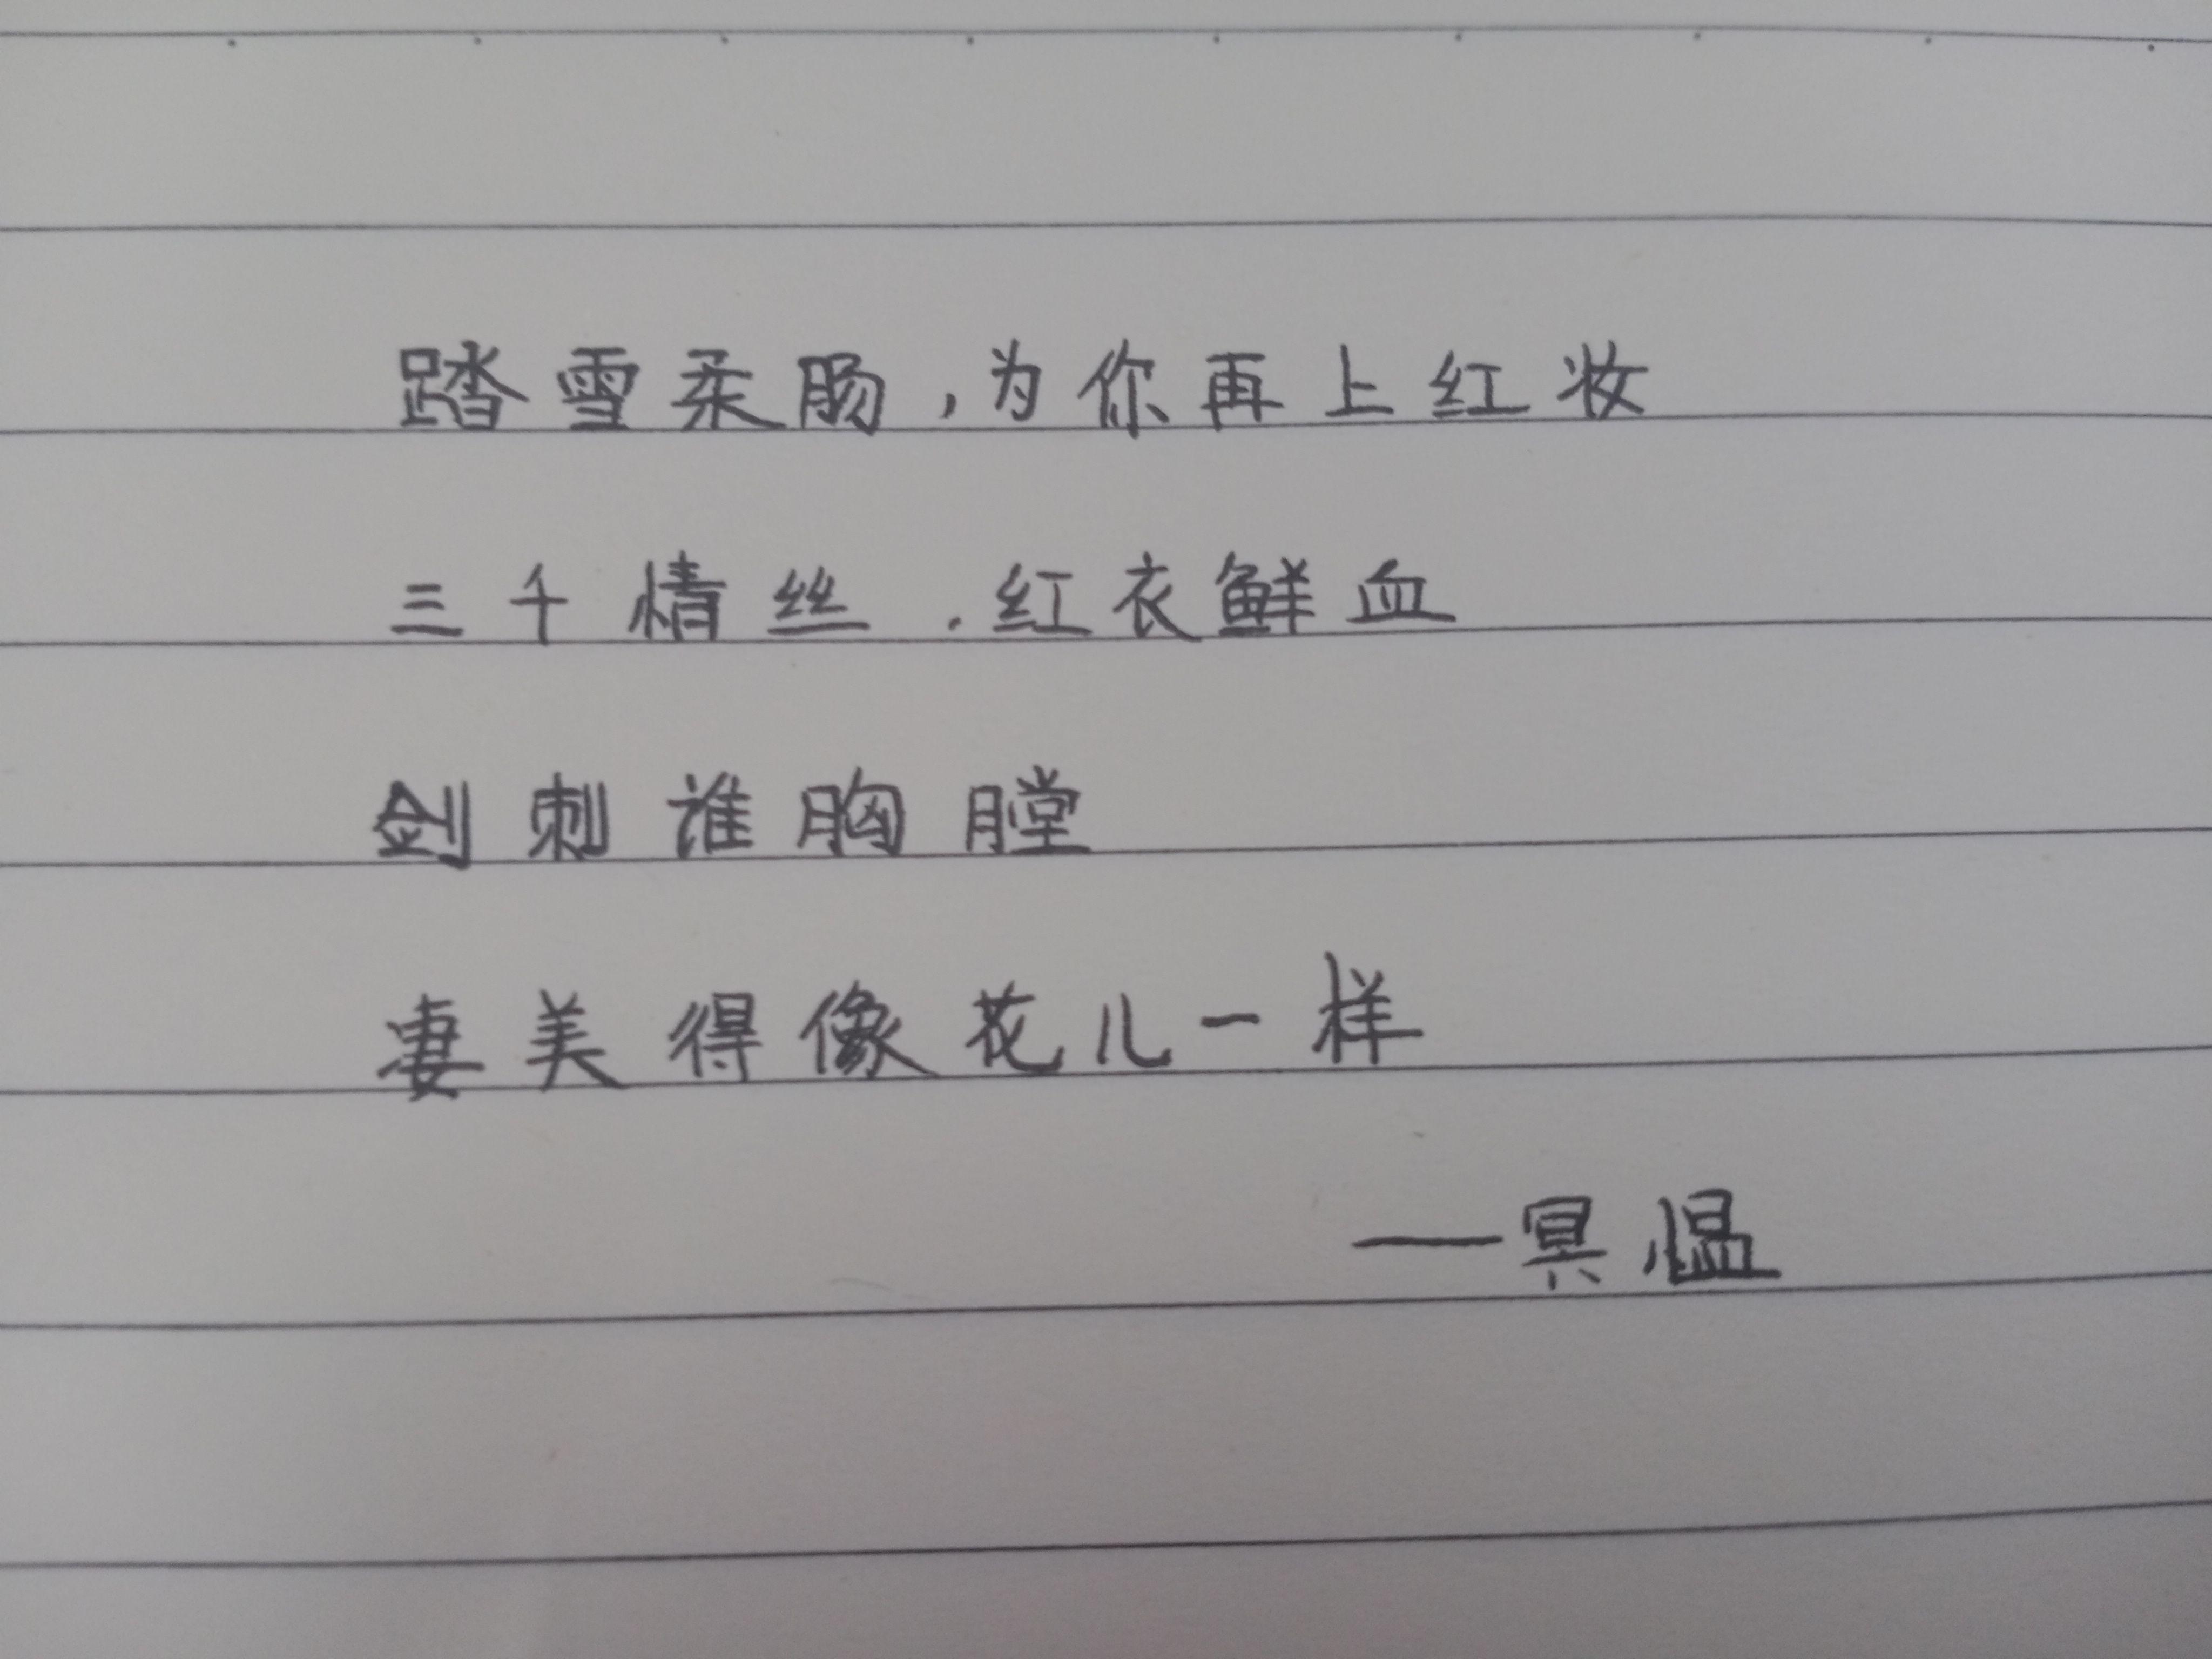 踏雪柔肠，为你再上红妆
三千情丝．红衣鲜血
剑刺谁胸膛
凄美得像花儿一样
——冥愠